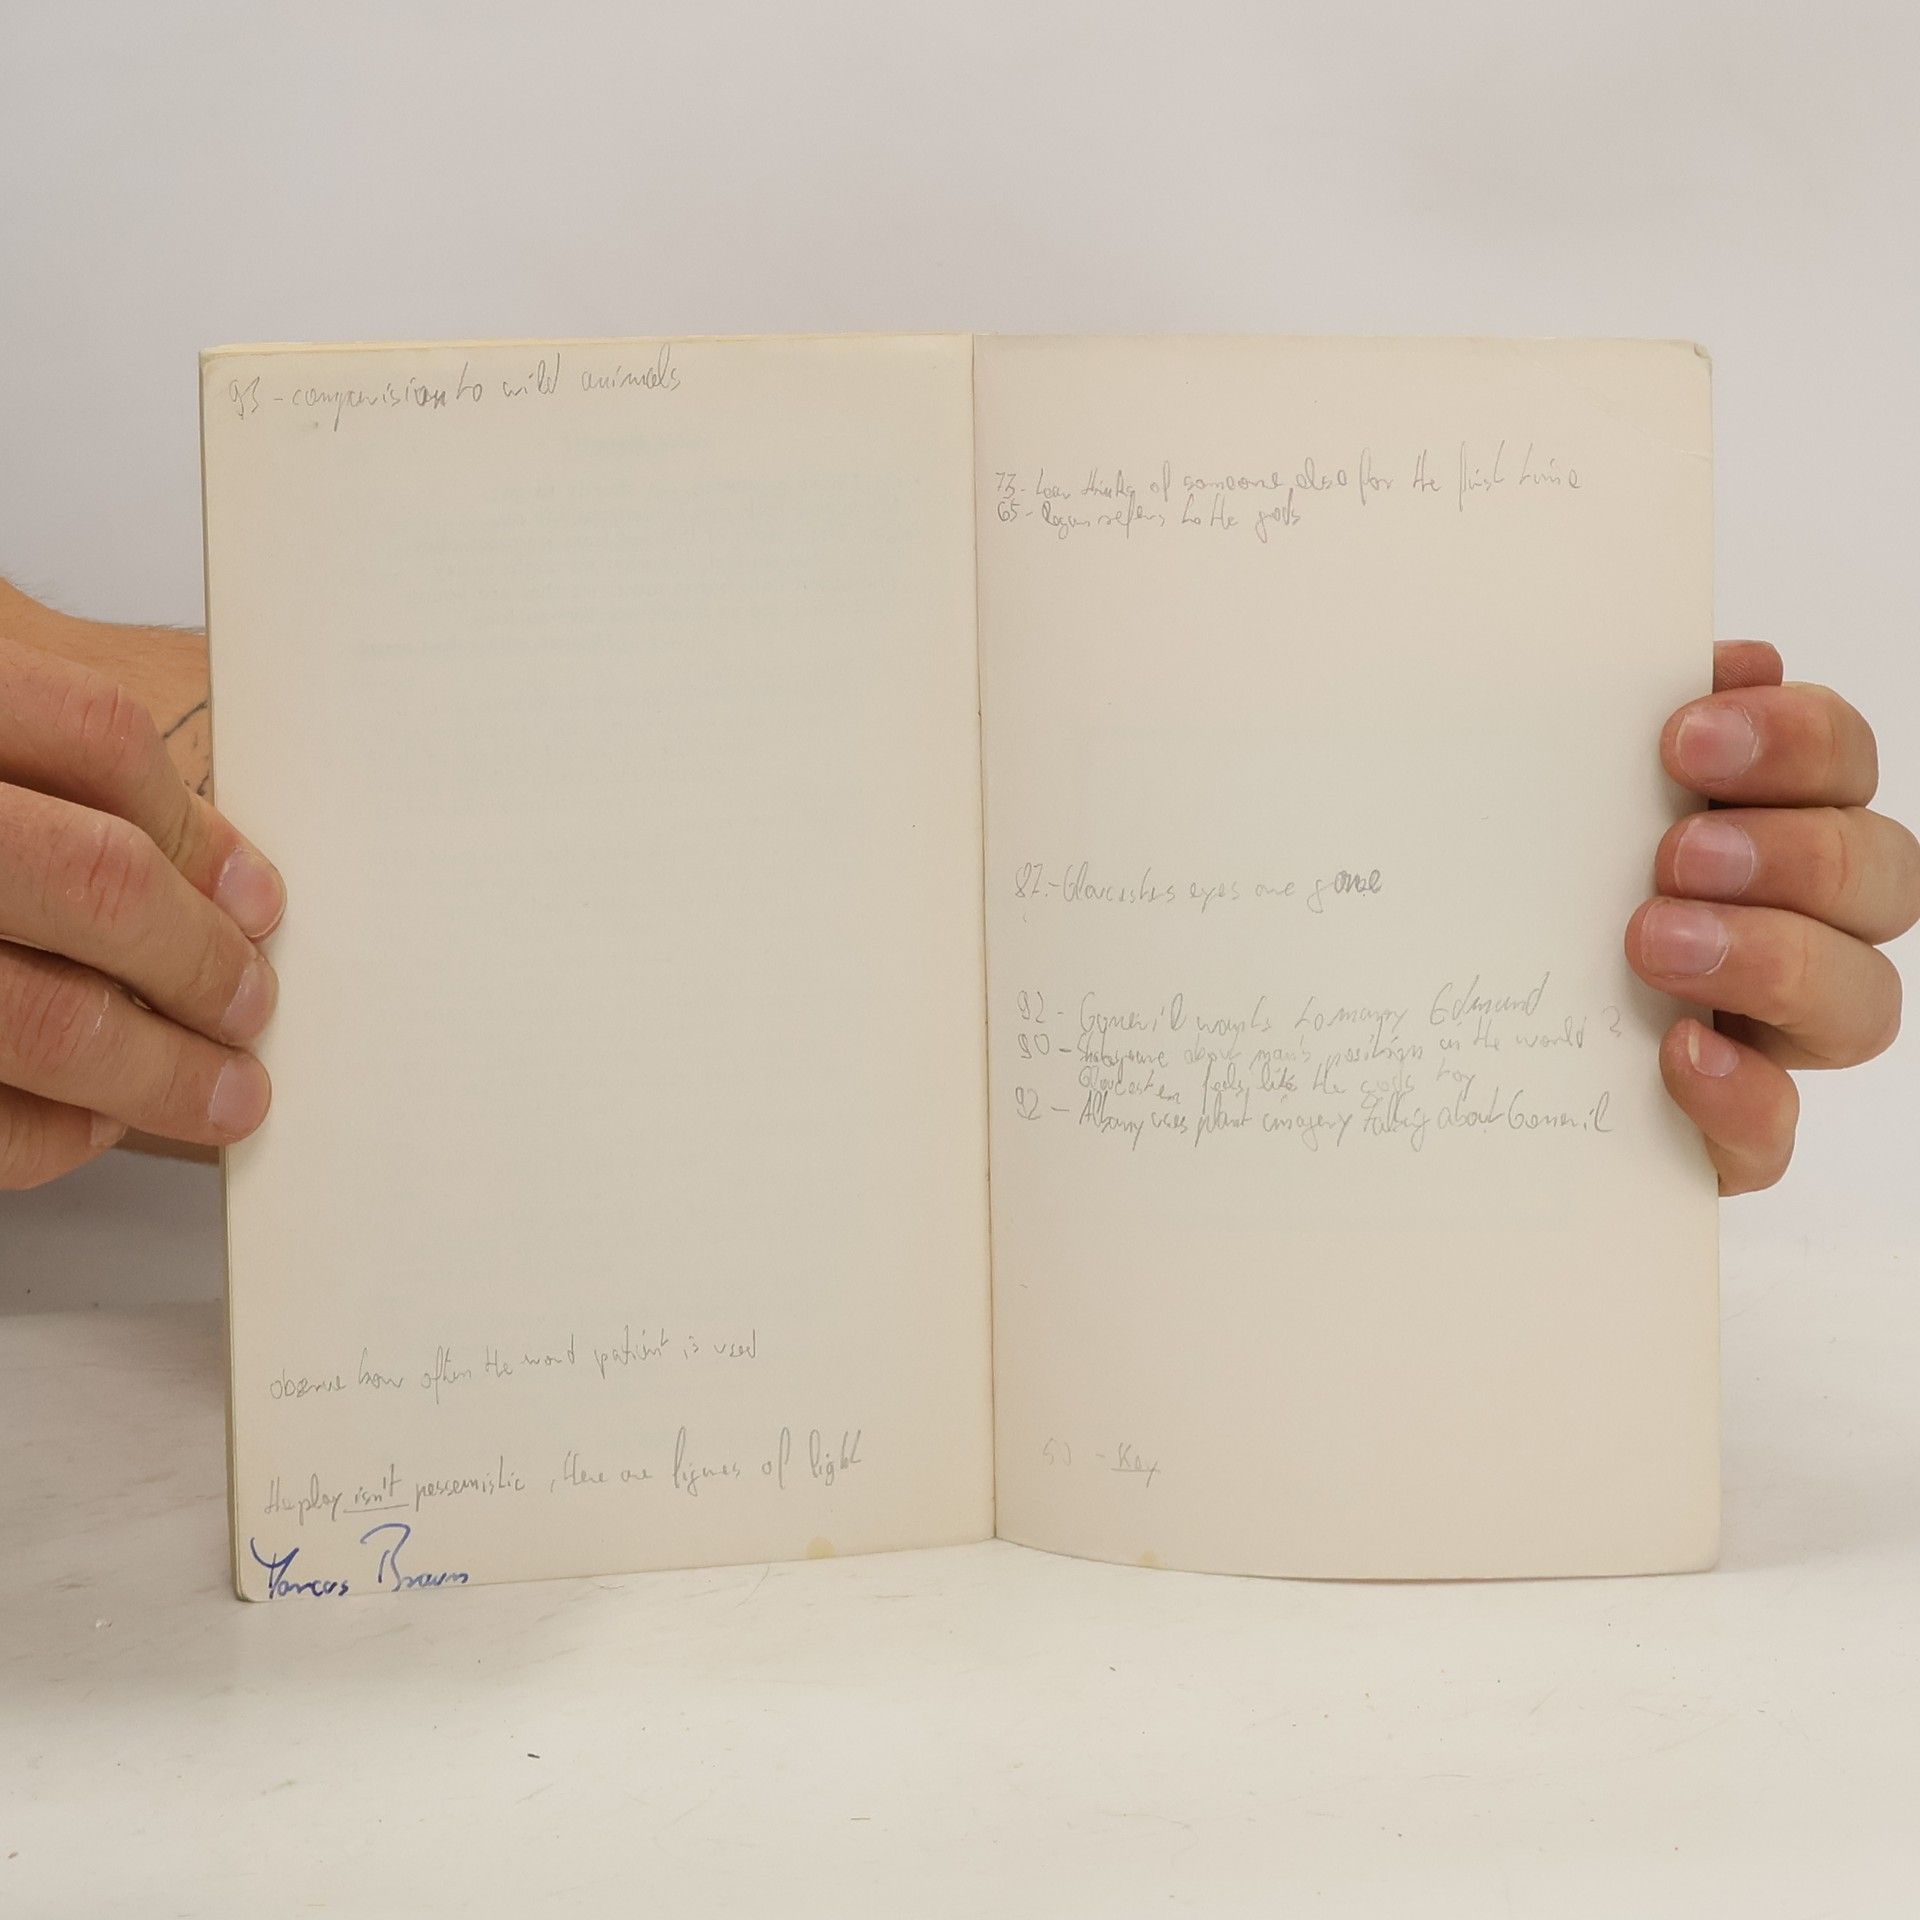 93 - comparision to wild animals
observe how often the word patient is used
the play isn't pessemistic, there are figures of light
Marcus Braun
73 - Lear thinks of someone else for the first time
65 - Regan refers to the gods
87 - Gloucesters eyes are gone
92 - Goneril wants to marry Edmund
90 - Shakespeare about man's position in the world ?
Gloucester feels like the gods toy
92 - Albany uses plant imagery talking about Goneril
50 - Key